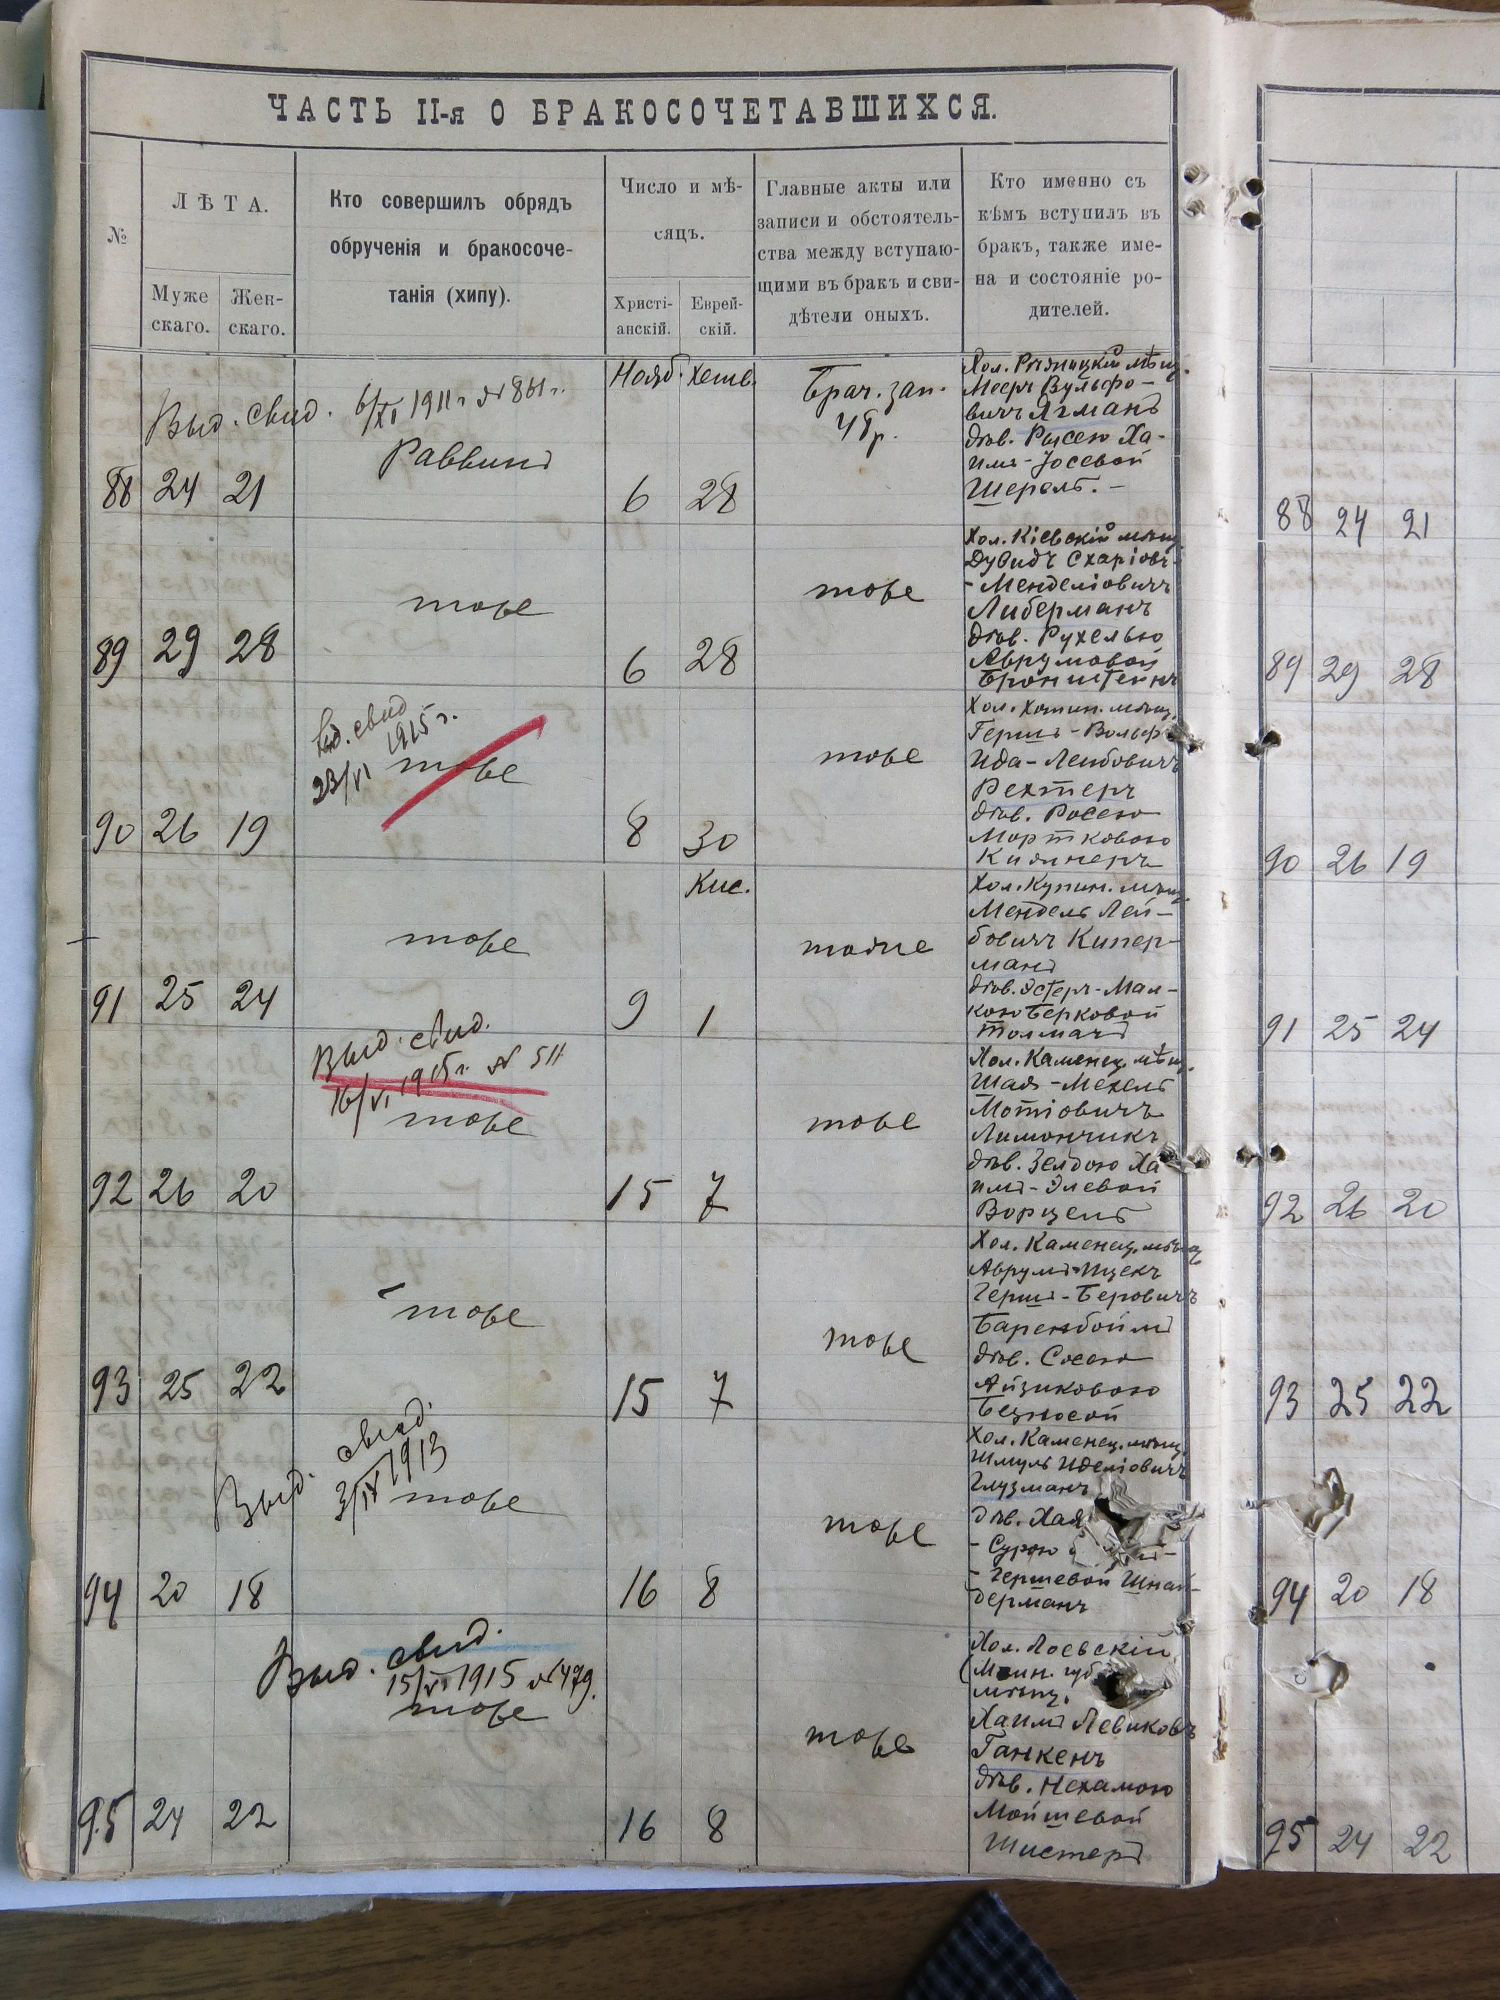 ЧАСТЬ II-я О БРАКОСОЧЕТАВШИХСЯ.
№
ЛѢТА.
Муже
скаго.
Жен-
скаго.
Кто совершилъ обрядъ
обрученія и бракосоче-
танія (хипу).
Число и мѣ-
сяцъ.
Христі-
анскій.
Еврей-
скій.
Главные акты или
записи и обстоятель-
ства между вступаю-
щими въ бракъ и сви-
дѣтели оныхъ.
Кто именно съ
кѣмъ вступилъ въ
бракъ, также име-
на и состояніе ро-
дителей.
Выд. свид. 6/XI 1911 г № 861 г.
Раввинъ
88 24 21
Нояб. Хешв.
6 28
Брач. зап.
Хол. мѣщ.
Мееръ Вульфо-
вичъ Агманъ
дѣв. Рысею Ха-
имъ-Іосевой
Шерелъ. -
тоже
89 29 28
6 28
тоже
Хол. Кіевскій мѣщ.
Дувидъ
-Менделіовичъ
Либерманъ
дѣв. Рухелью
Аврумовой
Бронштейнъ
свид
1915 г.
23/VI тоже
90 26 19
8 30
тоже
Хол. Хотин. мѣщ.
Гершъ-Вольф
Ида-Лейбовичъ
Рехтеръ
дѣв. Росею
Мортковою
Кижнеръ
тоже
91 25 24
Кис.
9 1
тоже
Хол. Купин. мѣщ.
Мендель Лей-
бовичъ Кипер-
манъ
дѣв. Эстеръ-Мал-
кою Берковой
Толмачъ
Выд. свид.
16/VI 1915 г. № 511
тоже
92 26 20
15 7
тоже
Хол. Каменец. мѣщ.
Шая-Мехель
Мотіовичъ
Лимончикъ
дѣв. Зелдою Ха
имъ-Элевой
Ворцель
тоже
93 25 22
15 7
тоже
Хол. Каменец. мѣщ
Аврумъ-Ицекъ
Гершъ-Беровичъ
Баренбоймъ
дѣв. Сосею
Айзиковою
Безносой
Выд. свид.
3/IX 1913
тоже
94 20 18
16 8
тоже
Хол. Каменец. мѣщ.
Шмуль Иделіовичъ
Глузманъ
дѣв. Хая
-Сурою
-Гершевой Шнай-
дерманъ
Выд. свид.
15/VI 1915 № 479.
тоже
95 24 22
16 8
тоже
Хол. Лоевскій
(Мин. губ
мѣщ.
Хаимъ Левиковъ
Ганкенъ
дѣв. Нехамою
Мойшевой
Шистеръ
88 24 21
89 29 28
90 26 19
91 25 24
92 26 20
93 25 22
94 20 18
95 24 22